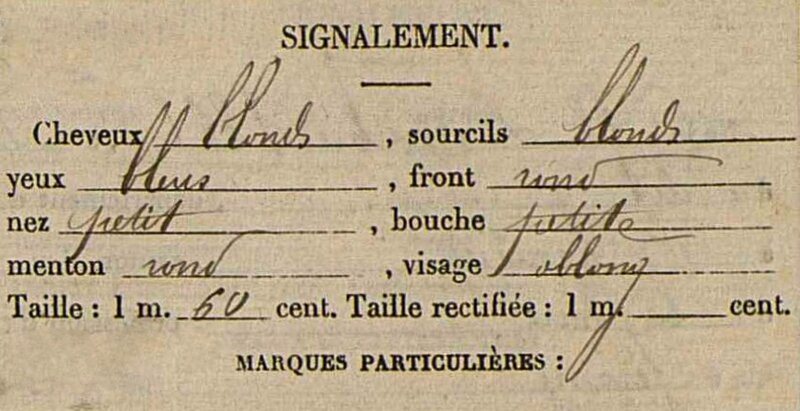 SIGNALEMENT.
Cheveux blonds , sourcils blonds
yeux bleus , front rond
nez petit , bouche petite
menton rond , visage oblong
Taille : 1 m. 60 cent. Taille rectifiée : 1 m. cent.
MARQUES PARTICULIÈRES :